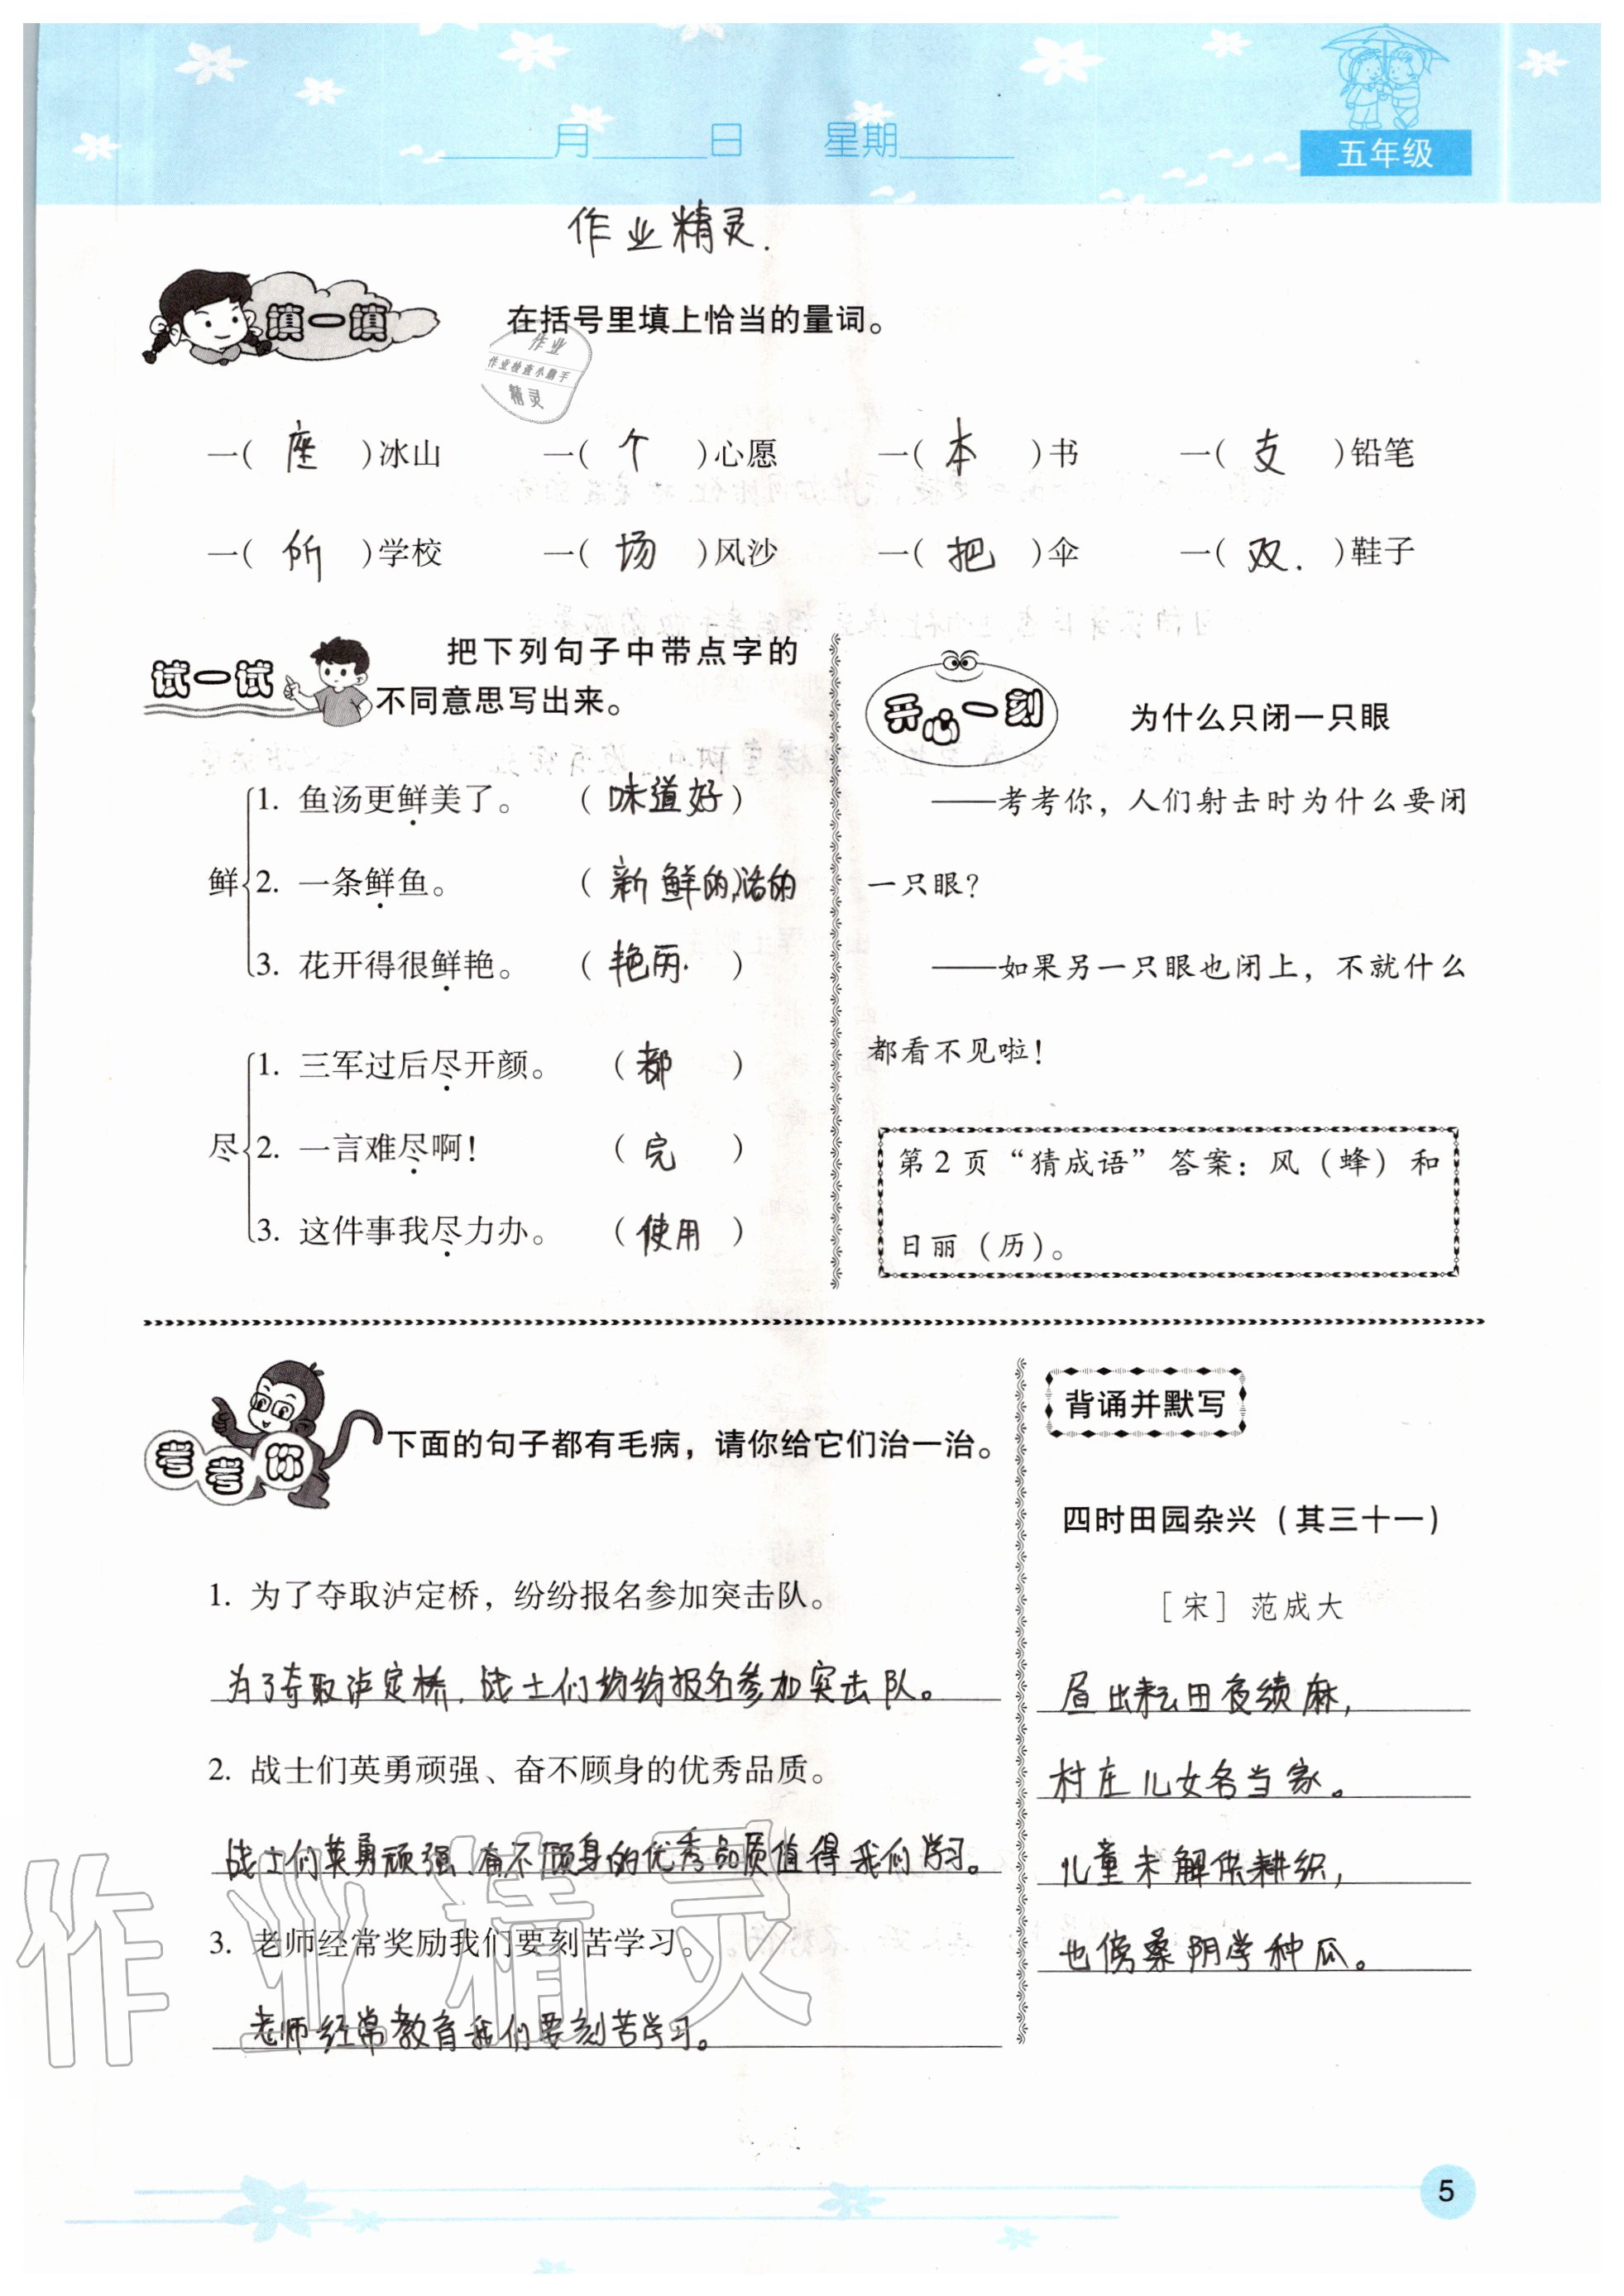 月 日 星期
五年级
作业精灵.
填一填 在括号里填上恰当的量词。
作业
作业检查小助手
精灵
一( 座 )冰山 一( 个 )心愿 一( 本 )书 一( 支 )铅笔
一( 所 )学校 一( 场 )风沙 一( 把 )伞 一( 双. )鞋子
试一试 把下列句子中带点字的
不同意思写出来。
鲜
1. 鱼汤更鲜美了。 (味道好)
2. 一条鲜鱼。 (新鲜的,活的
3. 花开得很鲜艳。 (艳丽.)
尽
1. 三军过后尽开颜。 (都)
2. 一言难尽啊! (完)
3. 这件事我尽力办。 (使用)
开心一刻 为什么只闭一只眼
——考考你，人们射击时为什么要闭
一只眼?
——如果另一只眼也闭上，不就什么
都看不见啦!
第2页“猜成语”答案：风（蜂）和
日丽（历）。
考考你 下面的句子都有毛病，请你给它们治一治。
1. 为了夺取泸定桥，纷纷报名参加突击队。
为了夺取泸定桥,战士们纷纷报名参加突击队。
2. 战士们英勇顽强、奋不顾身的优秀品质。
战士们英勇顽强、奋不顾身的优秀品质值得我们学习。
3. 老师经常奖励我们要刻苦学习。
老师经常教育我们要刻苦学习。
背诵并默写
四时田园杂兴（其三十一）
［宋］范成大
昼出耘田夜绩麻,
村庄儿女各当家。
儿童未解供耕织,
也傍桑阴学种瓜。
作业精灵
5